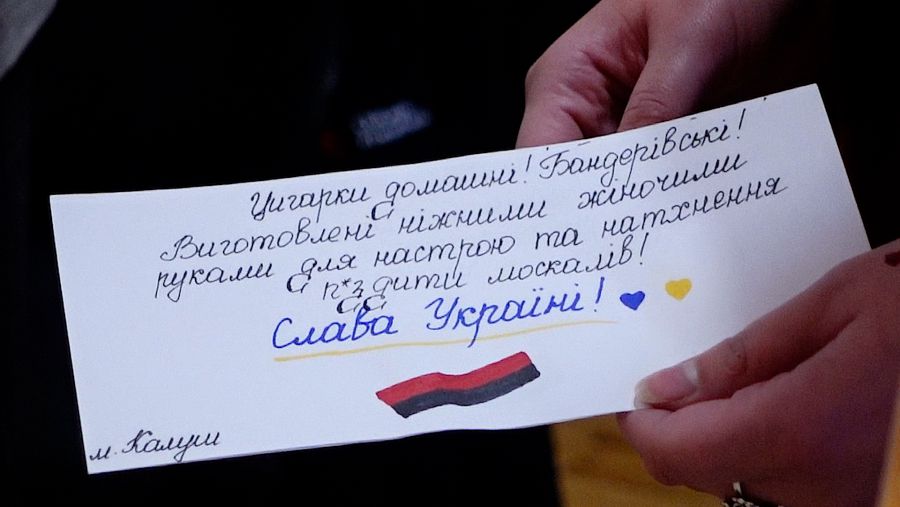 Цигарки домашні! Бандерівські!
Виготовлені ніжними жіночими
руками для настрою та натхнення
п*здити москалів!
Слава Україні!
м. Калуш